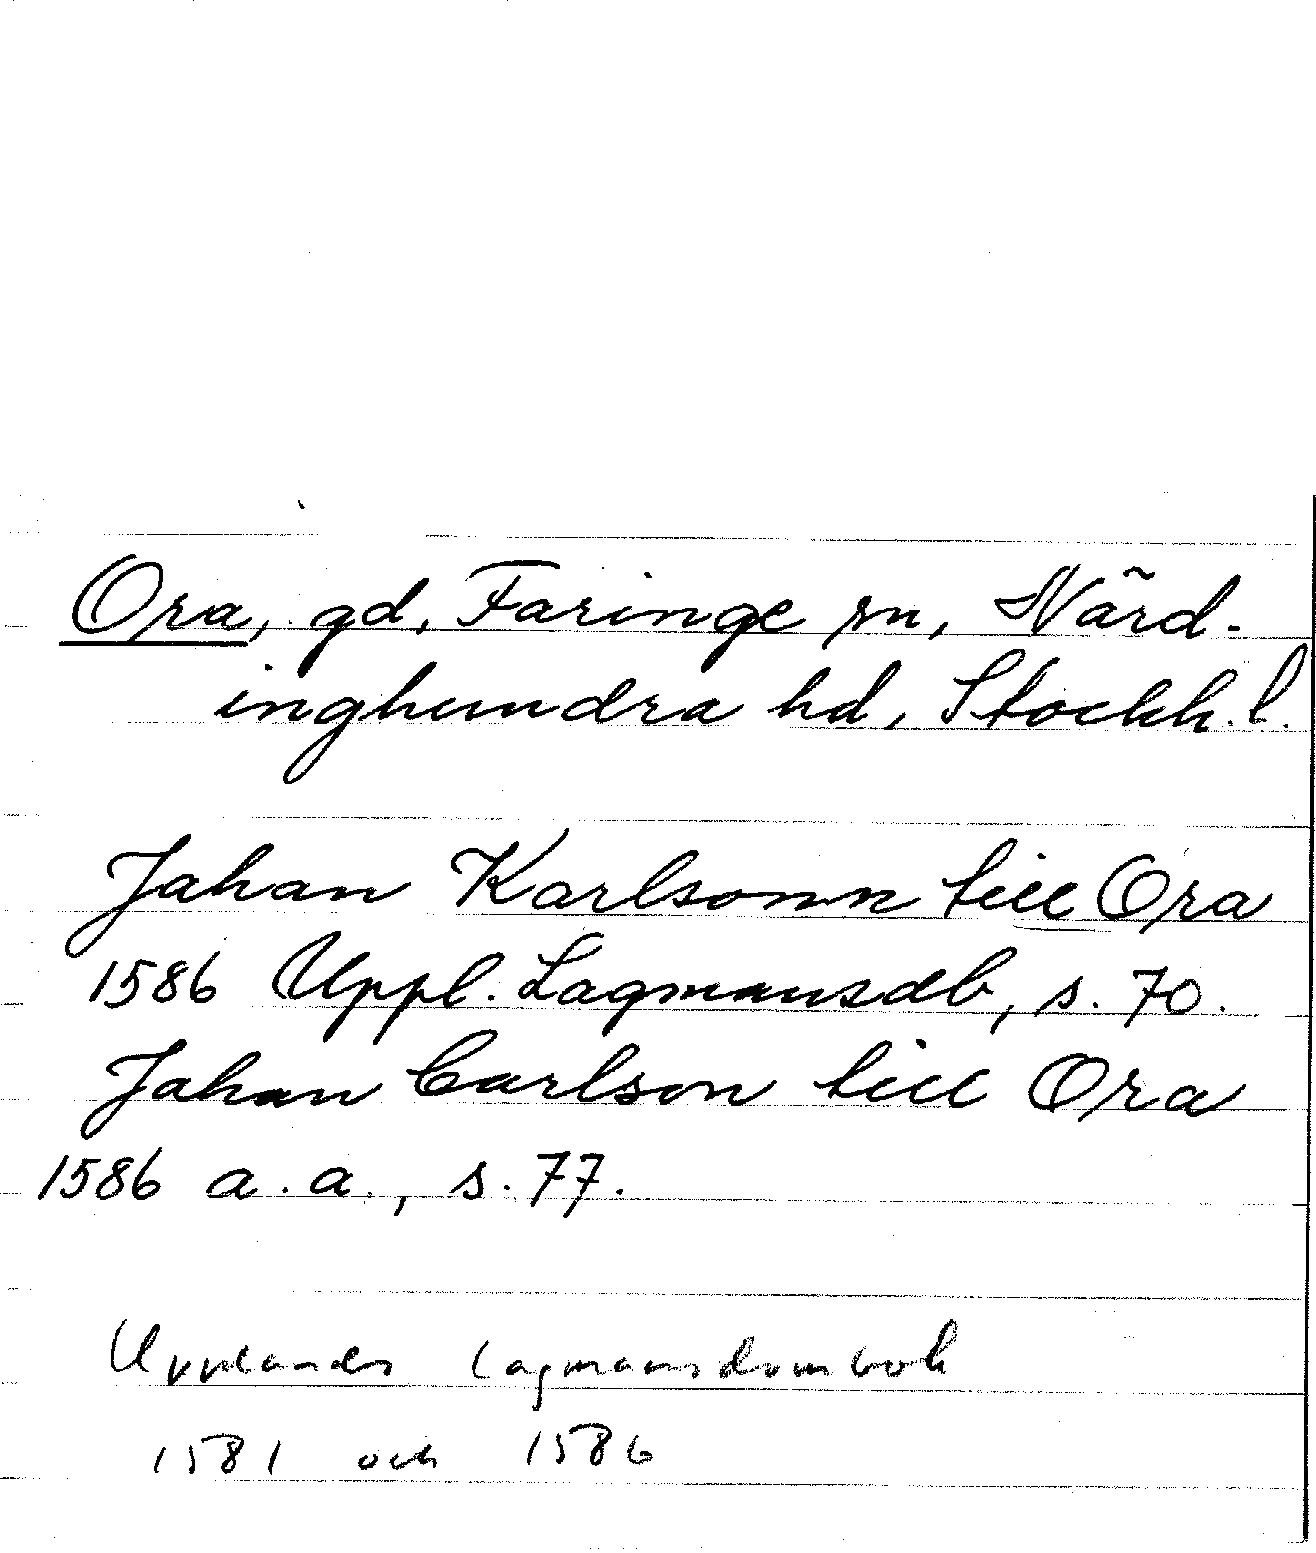 Ora, gd, Faringe sn, Närd-
inghundra hd, Stockh. l.
Jahan Karlsonn till Ora
1586 Uppl. Lagmansdb, s. 70.
Jahan Carlson till Ora
1586 a. a., s. 77.
Upplands lagmansdombok
1581 och 1586